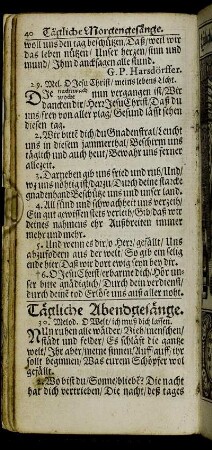 40 Tägliche Morgengesänge.
woll uns den tag behüten, Daß/ weil wir
das leben nützen/ Unser hertzen/ sinn und
mund/ Ihm dancksagen alle stund.
G. P. Harsdörffer.
29. Mel. O Jesu Christ/ meins lebens Licht.
DIe nacht ist nun vergangen ist/ Wir
dancken dir/ Herr Jesu Christ/ Daß du
uns frey von aller plag/ Gesund lässt sehen
diesen tag.
2. Wir bitt dich du Gnadenstral/ Leucht
uns in diesem jammerthal/ Beschirm uns
täglich und auch heut/ Bewahr uns ferner
allezeit.
3. Darneben gib uns fried und ruh/ Und
was uns nöhtig ist/ darzu/ Durch deine starcke
gnadenhand Beschütze uns und unser land.
4. All sünd und schwachheit uns verzeih/
Ein gut gewissen stets verleih/ Gib daß wir
deines nahmens ehr Außbreiten immer
mehr und mehr.
5. Und wenn es dir/ o Herr/ gefällt/ Uns
abzufodern aus der welt/ So gib ein selig
ende hier/ Daß wir dort ewig seyn bey dir.
6. O Jesu Christ erbarme dich/ Hör un-
ser bitte gnädiglich/ Durch dein verdienst/
durch deine tod Erlöse uns aus aller noht.
Tägliche Abendgesänge.
30. Melod. O Welt/ ich muß dich lassen.
NUn ruhen alle wälder/ Vieh/ menschen/
städt und felder/ Es schläft die gantze
welt/ Ihr aber/ meine sinnen/ Auf/ auf/ ihr
sollt beginnen/ Was eurem Schöpfer wol
gefällt.
2. Wo bist du/ Sonne/ bliebē? Die nacht
hat dich vertrieben/ Die nacht/ deß tages